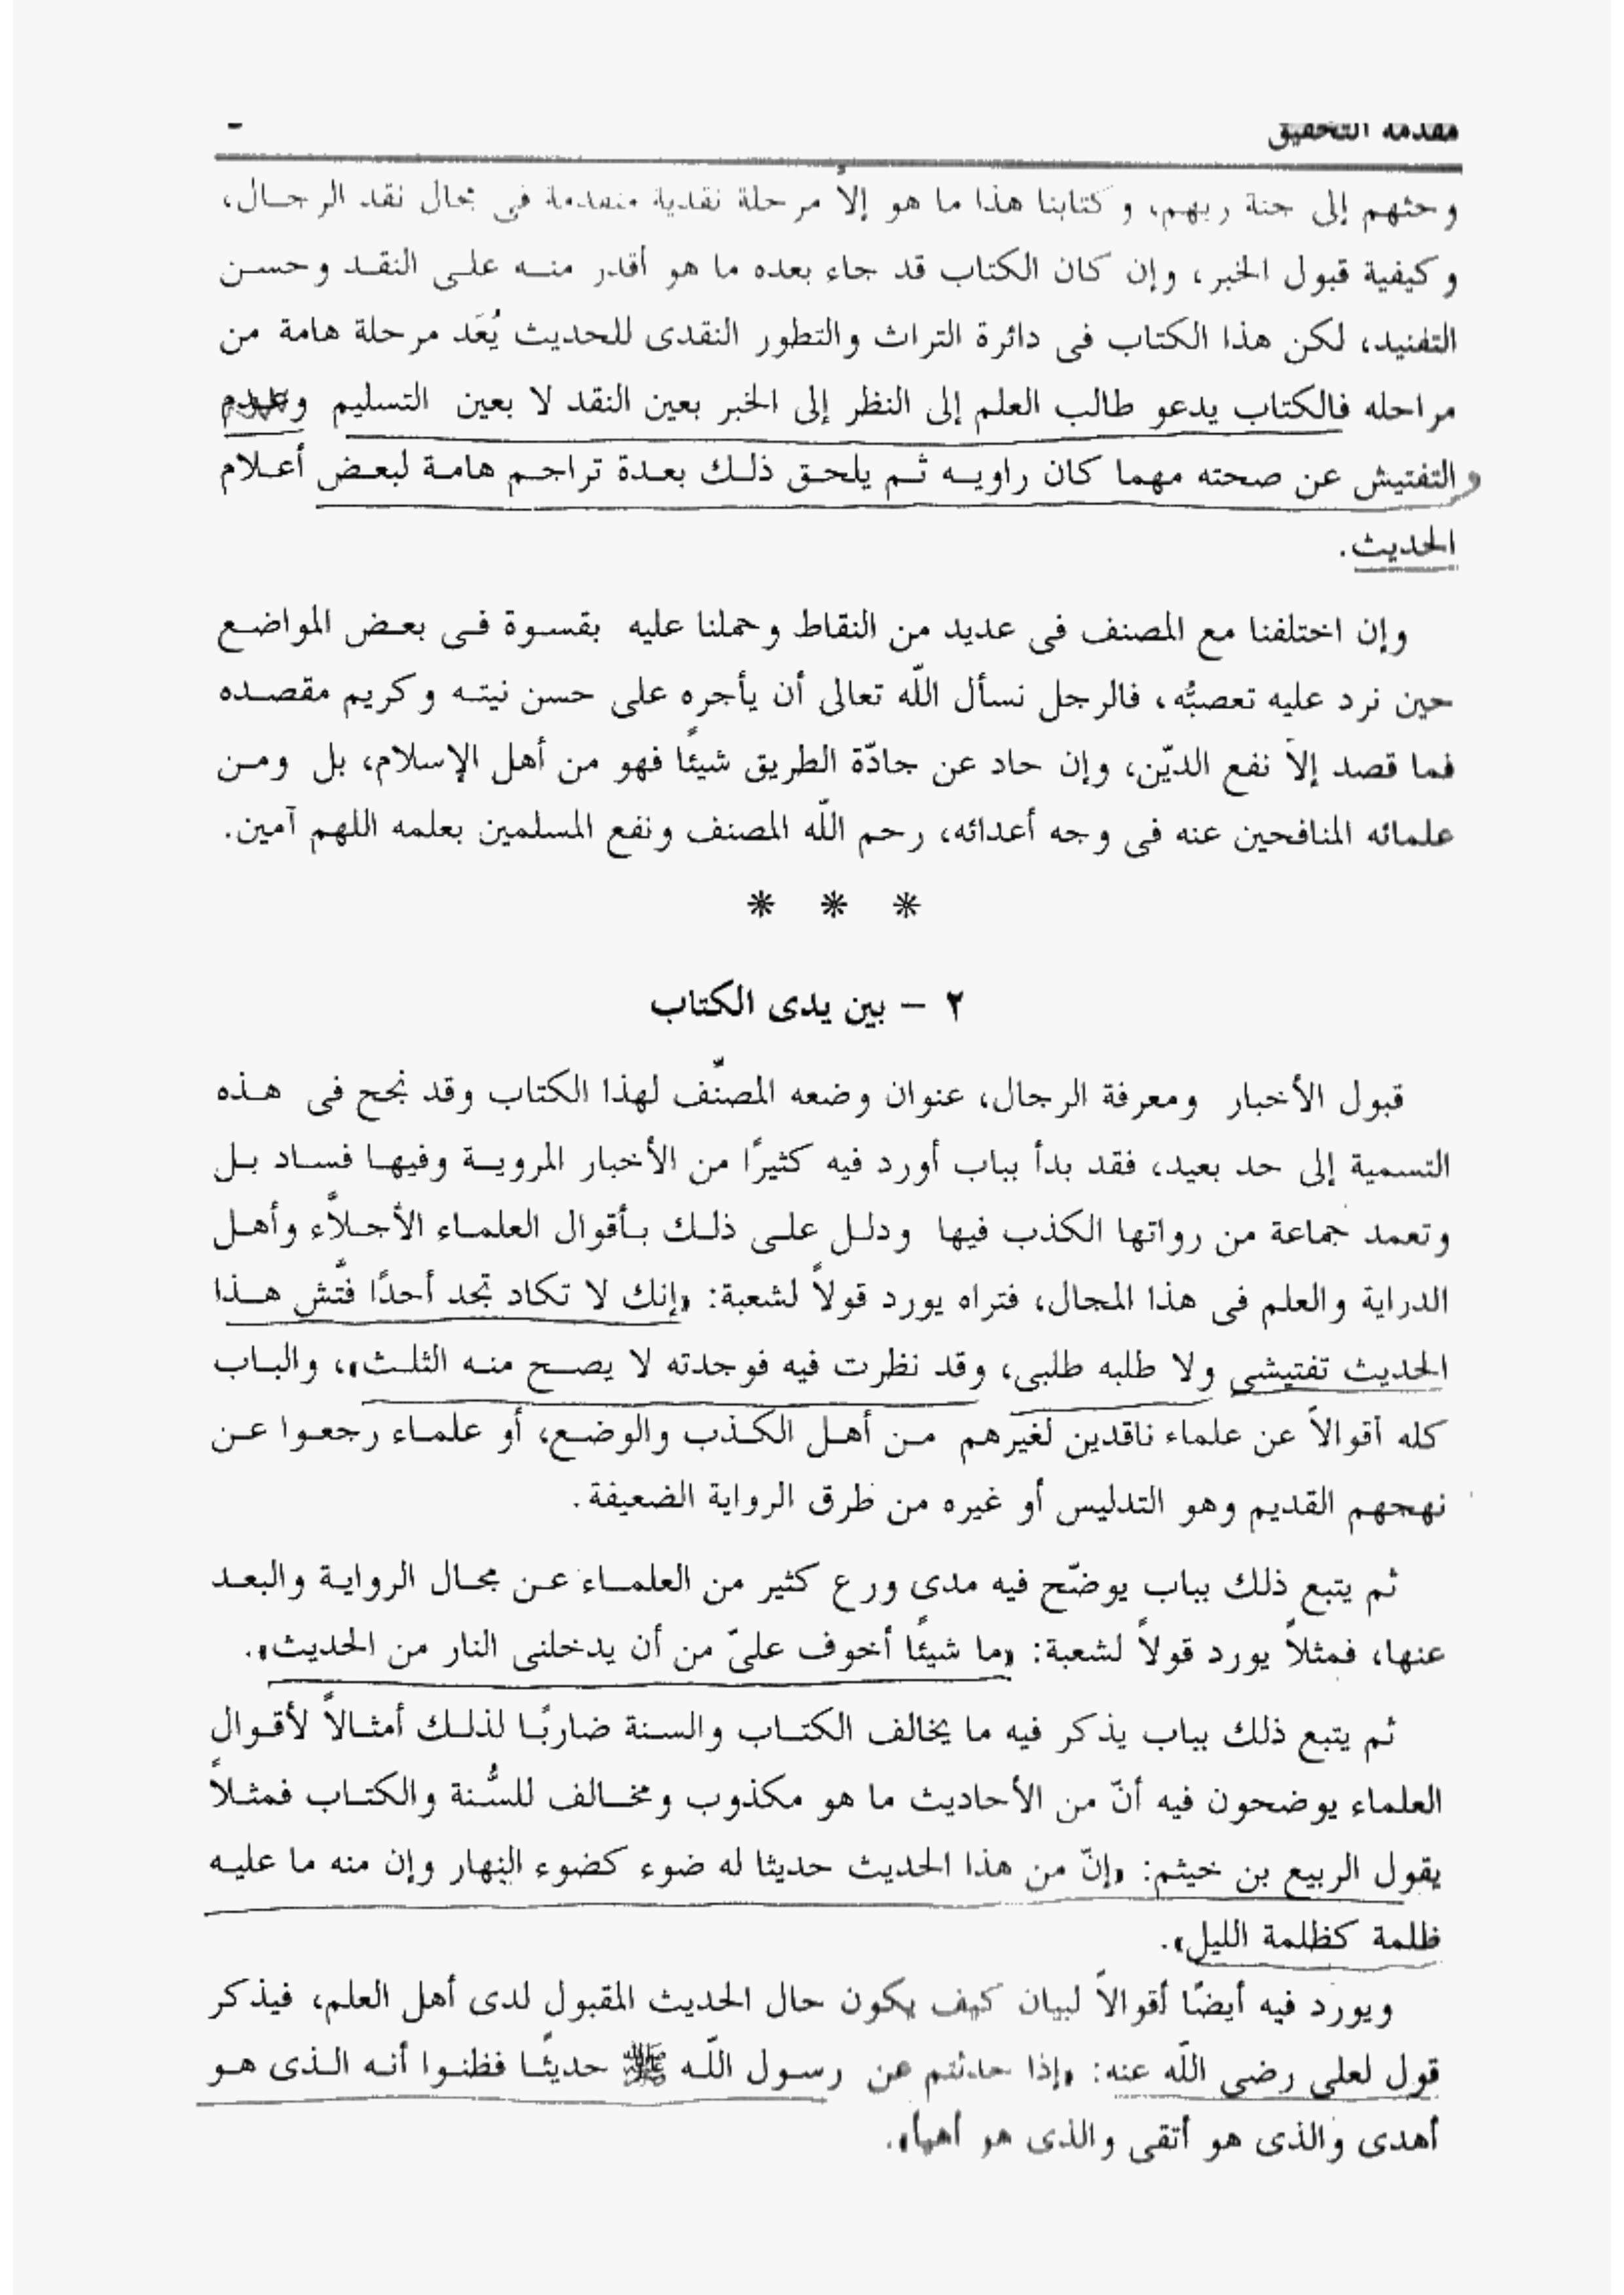 مقدمة التحقيق
وحثهم إلى جنة ربهم، وكتابنا هذا ما هو إلاّ مرحلة نقدية متقدمة فى مجال نقد الرجال،
وكيفية قبول الخبر، وإن كان الكتاب قد جاء بعده ما هو أقدر منه على النقد وحسن
التفنيد، لكن هذا الكتاب فى دائرة التراث والتطور النقدى للحديث يُعَد مرحلة هامة من
مراحله فالكتاب يدعو طالب العلم إلى النظر إلى الخبر بعين النقد لا بعين التسليم وعدم
والتفتيش عن صحته مهما كان راويه ثم يلحق ذلك بعدة تراجم هامة لبعض أعلام
الحديث.
وإن اختلفنا مع المصنف فى عديد من النقاط وحملنا عليه بقسوة فى بعض المواضع
حين نرد عليه تعصبُّه، فالرجل نسأل اللّه تعالى أن يأجره على حسن نيته وكريم مقصده
فما قصد إلاَ نفع الديّن، وإن حاد عن جادّة الطريق شيئًا فهو من أهل الإسلام، بل ومن
علمائه المنافحين عنه فى وجه أعدائه، رحم اللّه المصنف ونفع المسلمين بعلمه اللهم آمين.
* * *
٢ – بين يدى الكتاب
قبول الأخبار ومعرفة الرجال، عنوان وضعه المصنّف لهذا الكتاب وقد نجح فى هذه
التسمية إلى حد بعيد، فقد بدأ بباب أورد فيه كثيرًا من الأخبار المروية وفيها فساد بل
وتعمد جماعة من رواتها الكذب فيها ودلل على ذلك بأقوال العلماء الأجلاَّء وأهل
الدراية والعلم فى هذا المجال، فتراه يورد قولاً لشعبة: «إنك لا تكاد تجد أحدًا فتَّش هذا
الحديث تفتيشى ولا طلبه طلبى، وقد نظرت فيه فوجدته لا يصح منه الثلث»، والباب
كله أقوالاً عن علماء ناقدين لغيرهم من أهل الكذب والوضع، أو علماء رجعوا عن
نهجهم القديم وهو التدليس أو غيره من طرق الرواية الضعيفة.
ثم يتبع ذلك بباب يوضّح فيه مدى ورع كثير من العلماء عن مجال الرواية والبعد
عنها، فمثلاً يورد قولاً لشعبة: «ما شيئًا أخوف علىّ من أن يدخلنى النار من الحديث».
ثم يتبع ذلك بباب يذكر فيه ما يخالف الكتاب والسنة ضاربًا لذلك أمثالاً لأقوال
العلماء يوضحون فيه أنّ من الأحاديث ما هو مكذوب ومخالف للسُّنة والكتاب فمثلاً
يقول الربيع بن خيثم: «إنّ من هذا الحديث حديثا له ضوء كضوء النهار وإن منه ما عليه
ظلمة كظلمة الليل».
ويورد فيه أيضًا أقوالاً لبيان كيف يكون حال الحديث المقبول لدى أهل العلم، فيذكر
قول لعلى رضى اللّه عنه: «إذا حدثتم عن رسول اللّه ﷺ حديثًا فظنوا أنه الذى هو
أهدى والذى هو أتقى والذى هو أهيأ».